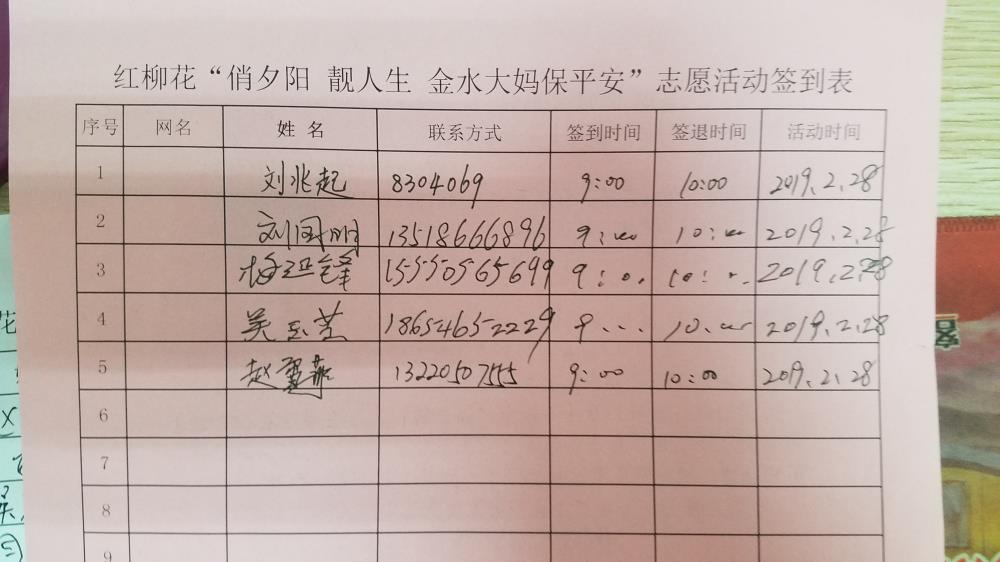 红柳花“俏夕阳 靓人生 金水大妈保平安”志愿活动签到表
序号 网名 姓名 联系方式 签到时间 签退时间 活动时间
1 刘兆起 8304069 9:00 10:00 2019.2.28
2 刘国明 13518666896 9:00 10:00 2019.2.28
3 15550565699 9:00 10:00 2019.2.28
4 吴玉芝 18654652229 9:00 10:00 2019.2.28
5 赵雪燕 13220507555 9:00 10:00 2019.2.28
6
7
8
9
花
客